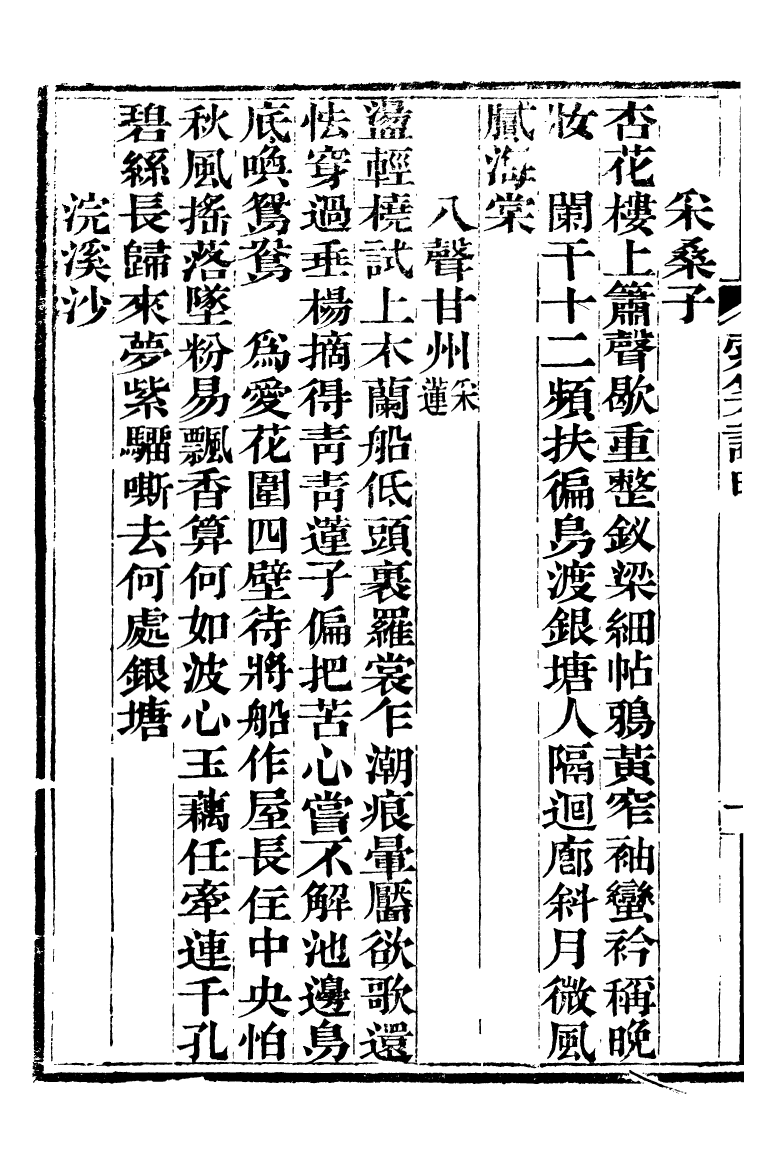 采桑子
杏花樓上簫聲歇重整釵梁細帖鴉黃窄袖蠻衿稱晚
妝　闌干十二頻扶徧鳥渡銀塘人隔迴廊斜月微風
膩海棠
八聲甘州采蓮
盪輕橈試上木蘭船低頭裹羅裳乍潮痕暈靨欲歌還
怯穿過垂楊摘得青青蓮子偏把苦心嘗不解池邊鳥
底喚鴛鴦　爲愛花圍四壁待將船作屋長住中央怕
秋風搖落墜粉易飄香算何如波心玉藕任牽連千孔
碧絲長歸來夢紫騮嘶去何處銀塘
浣溪沙